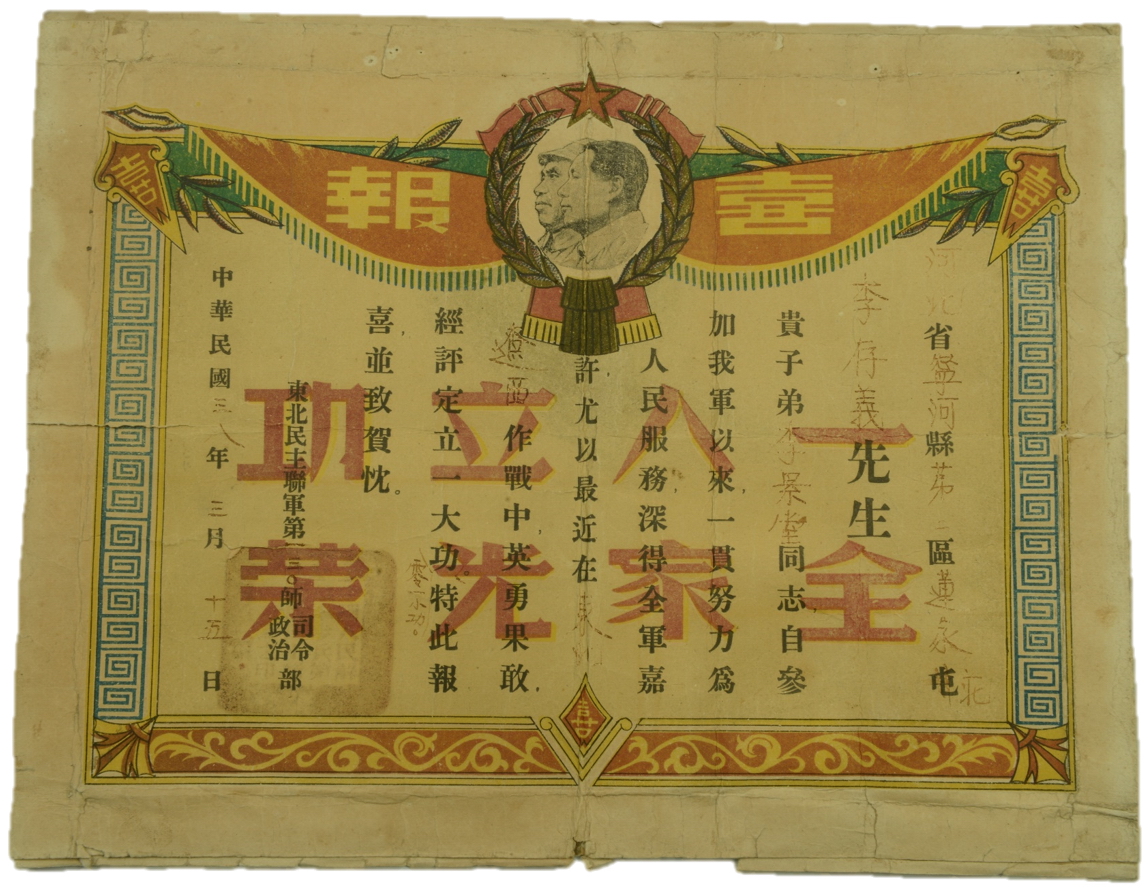 喜報
河北省寧河縣第一區蘆家屯
李存義先生
貴子弟李景奎同志,自參
加我軍以來,一貫努力為
人民服務,深得全軍嘉
許,尤以最近在
遼西作戰中,英勇果敢,
經評定立一大功。特此報
喜,並致賀忱。
東北民主聯軍第一三〇師司令部
政治
中華民國三八年三月十五日
一人立功
全家光榮